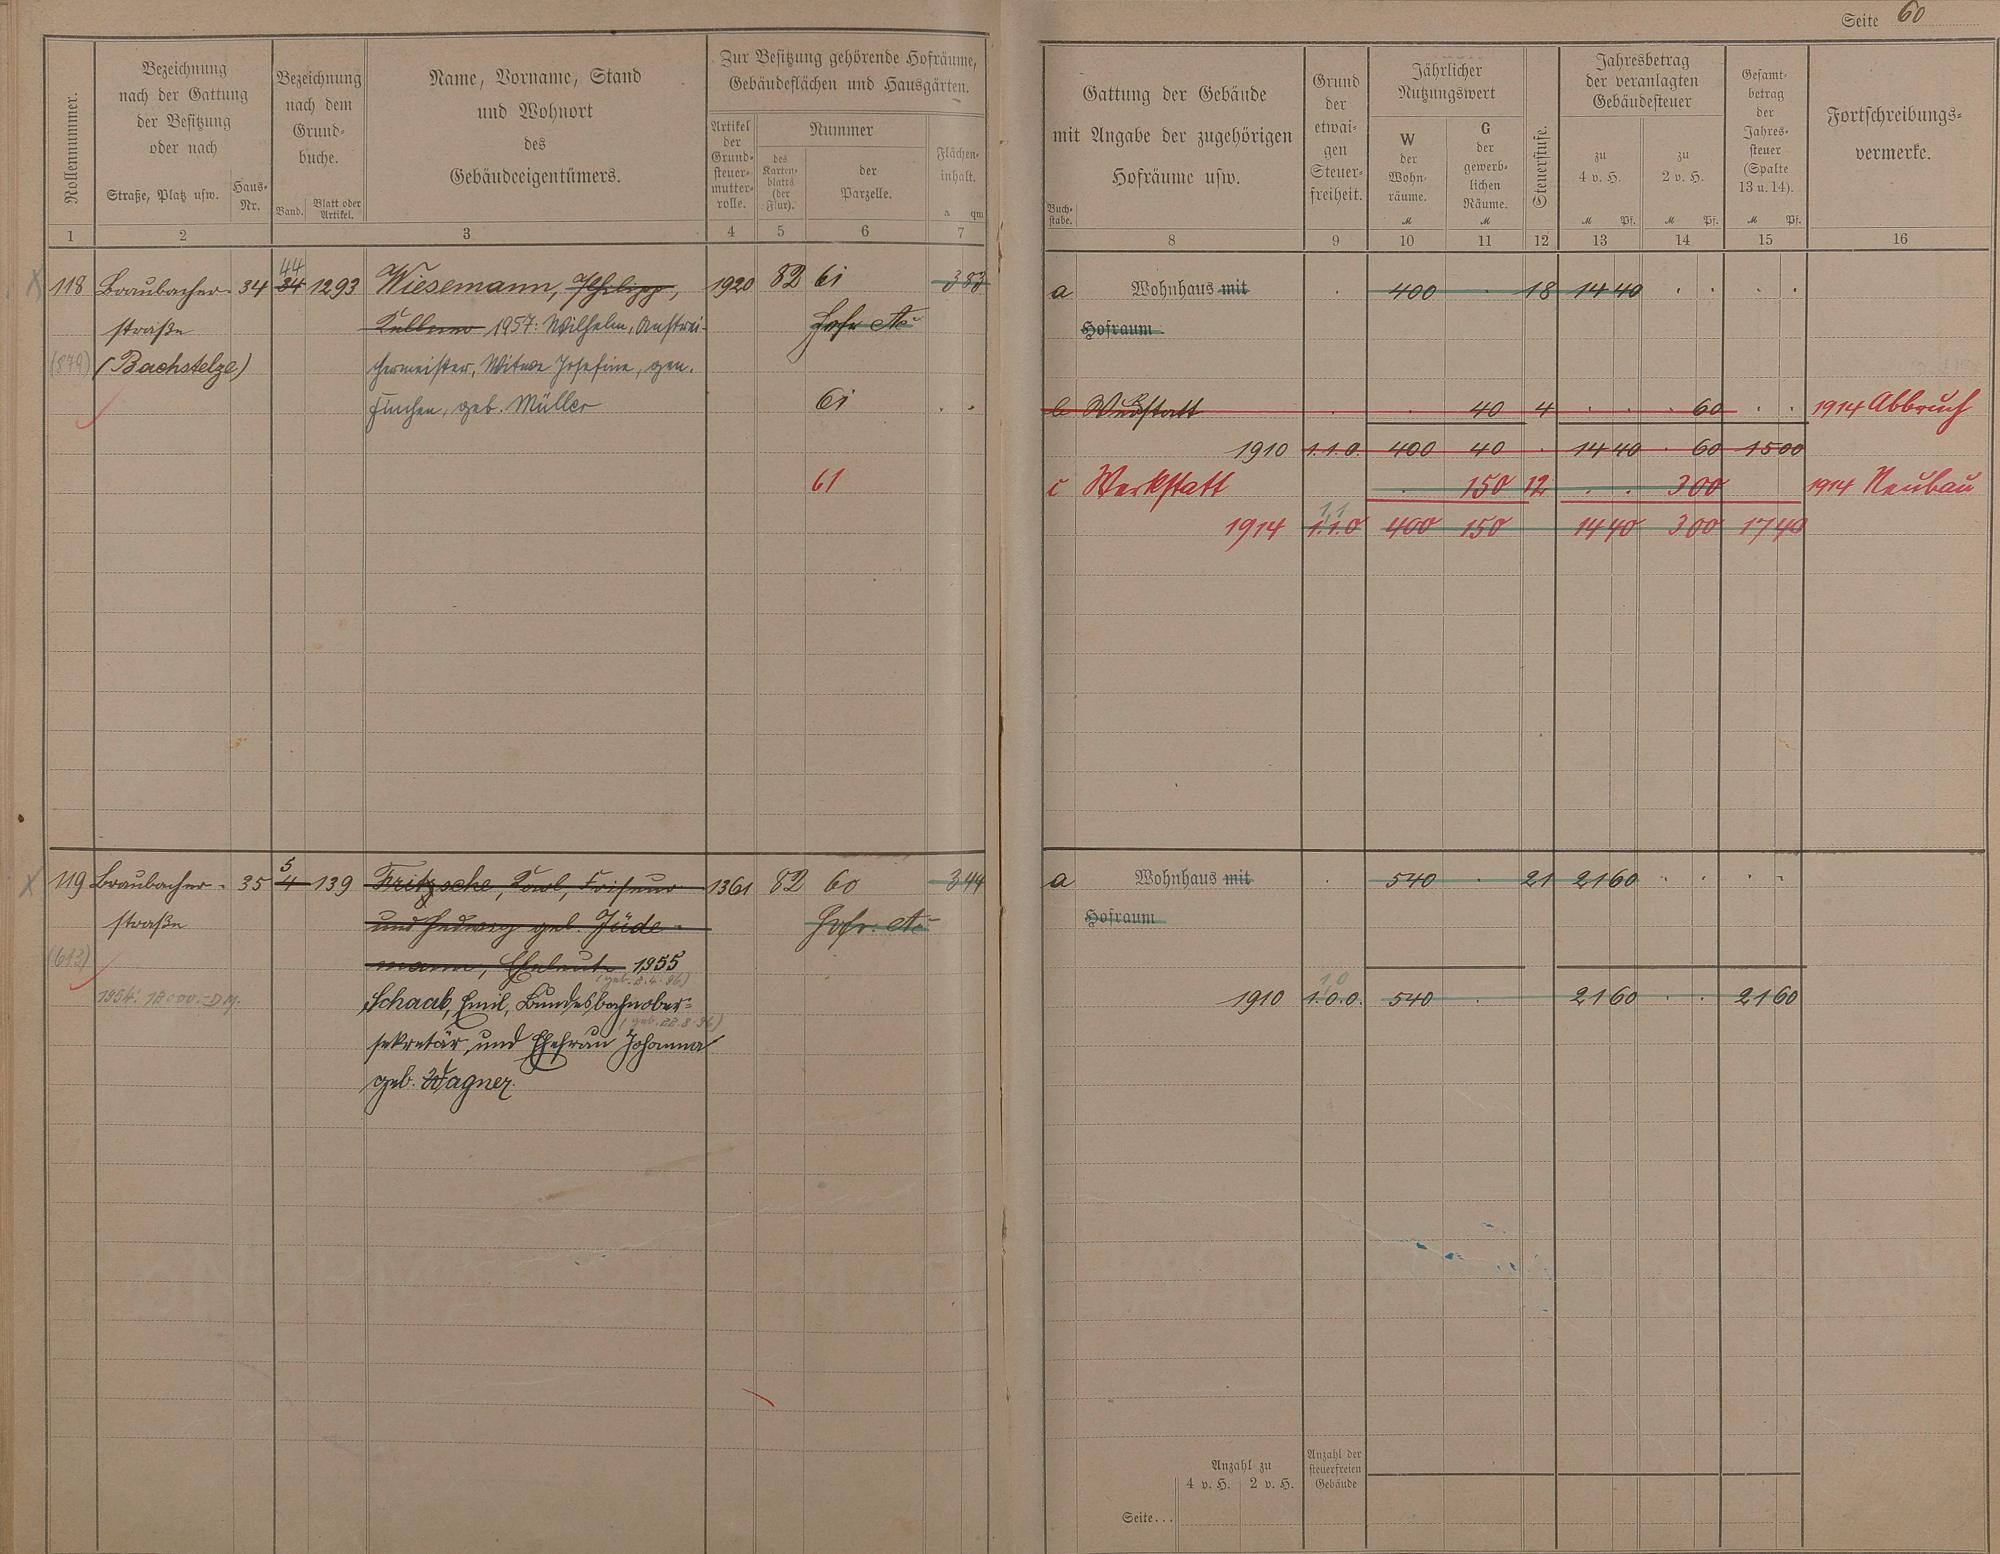 Seite 60
Rollennummer.
Bezeichnung
nach der Gattung
der Besitzung
oder nach
Straße, Platz usw.
Haus-
Nr.
Bezeichnung
nach dem
Grund-
buche.
Band.
Blatt oder
Artikel.
Name, Vorname, Stand
und Wohnort
des
Gebäudeeigentümers.
Zur Besitzung gehörende Hofräume,
Gebäudeflächen und Hausgärten.
Artikel
der
Grund-
steuer-
mutter-
rolle.
Nummer
des
Karten-
blatts
(der
Flur).
der
Parzelle.
Flächen-
inhalt.
a qm
Buch-
stabe.
Gattung der Gebäude
mit Angabe der zugehörigen
Hofräume usw.
Grund
der
etwai-
gen
Steuer-
freiheit.
Jährlicher
Nutzungswert
W
der
Wohn-
räume.
M
G
der
gewerb-
lichen
Räume.
M
Steuerstufe.
Jahresbetrag
der veranlagten
Gebäudesteuer
zu
4 v. H.
M Pf.
zu
2 v. H.
M Pf.
Gesamt-
betrag
der
Jahres-
steuer
(Spalte
13 u. 14).
M Pf.
Fortschreibungs-
vermerke.
1 2 3 4 5 6 7 8 9 10 11 12 13 14 15 16
44
118 Braubacher- 34 34 1293 Wiesemann, Philipp, 1920 82 61 383 a Wohnhaus mit . 400 . 18 14 40 . . . .
straße Kellner 1957: Wilhelm, Anstrei- Hofr. etc. Hofraum.
(879) (Bachstelze) chermeister, Witwe Josefine, gen.
Finchen, geb. Müller 61 . . b Werkstatt . . 40 4 . . . 60 . . 1914 Abbruch
1910 1.1.0. 400 40 . 14 40 . 60 15 00
61 c Werkstatt . 150 12 . . 3 00 1914 Neubau
1,1
1914 1.1.0 400 150 14 40 3 00 17 40
5
119 Braubacher- 35 4 139 Fritzsche, Karl, Friseur 1361 82 60 344 a Wohnhaus mit . 540 . 21 21 60 . . . .
straße und Hedwig geb. Jüde- Hofr. etc. Hofraum
(613) mann, Eheleute 1955
(geb. 2.4.96)
1954: 18000.-DM. Schaab, Emil, Bundesbahnober-
1,0
1910 1.0.0. 540 . 21 60 . . 21 60
(geb. 22.8.96)
sekretär, und Ehefrau Johanna
geb. Wagner.
Anzahl zu
4 v. H. 2 v. H.
Anzahl der
steuerfreien
Gebäude
Seite...